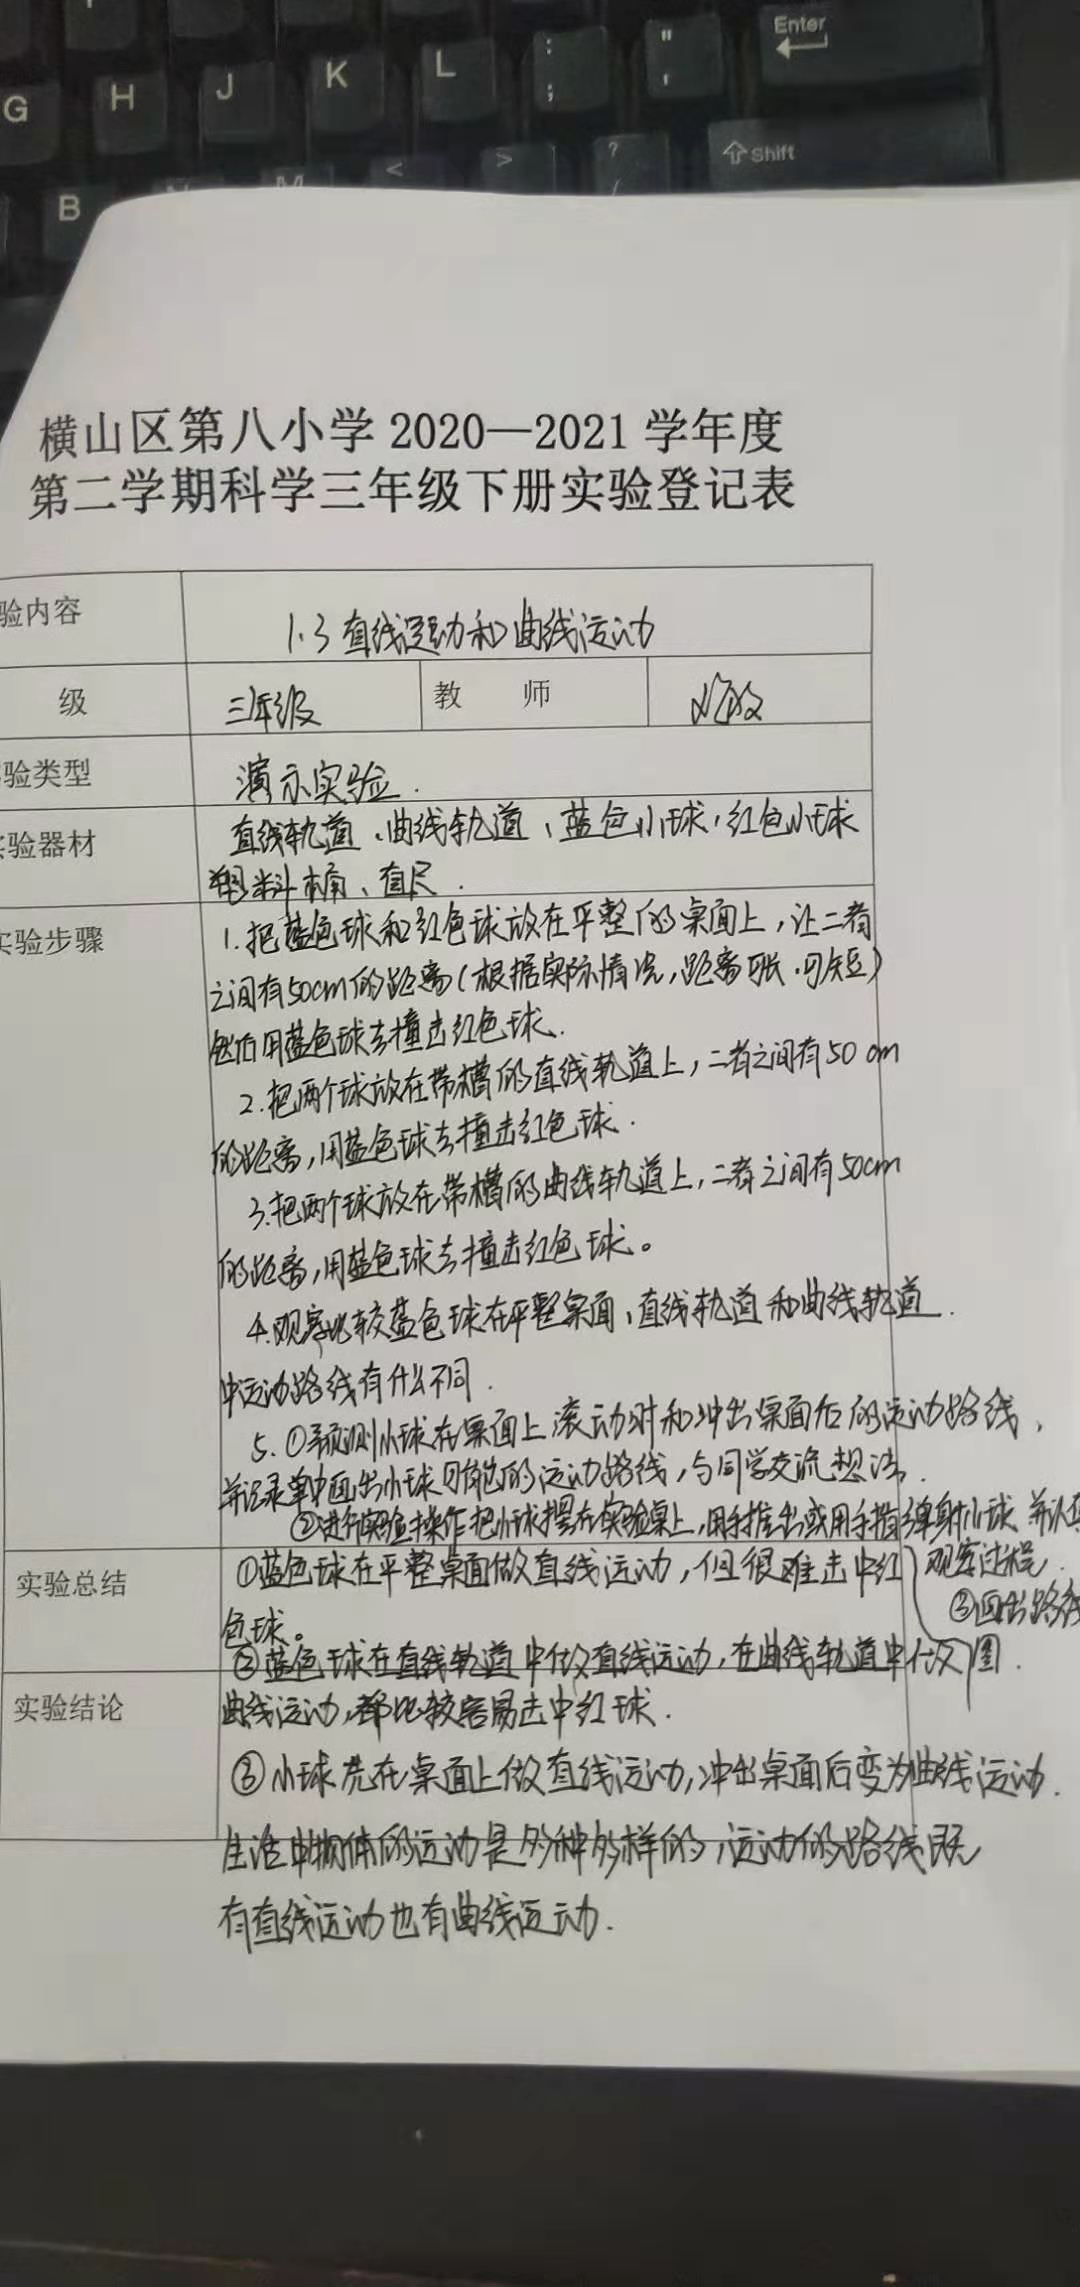 Enter
G H J K L : ; " '
B N M < > ? / Shift
横山区第八小学 2020—2021 学年度
第二学期科学三年级下册实验登记表
验内容 1.3 直线运动和曲线运动
级 三年级 教 师
验类型 演示实验.
实验器材 直线轨道、曲线轨道、蓝色小球、红色小球
塑料桶、直尺.
实验步骤 1.把蓝色球和红色球放在平整的桌面上,让二者
之间有50cm的距离(根据实际情况,距离可长.可短)
然后用蓝色球去撞击红色球.
2.把两个球放在带槽的直线轨道上,二者之间有50cm
的距离,用蓝色球去撞击红色球.
3.把两个球放在带槽的曲线轨道上,二者之间有50cm
的距离,用蓝色球去撞击红色球。
4.观察比较蓝色球在平整桌面、直线轨道和曲线轨道
中运动路线有什么不同.
5.①预测小球在桌面上滚动时和冲出桌面后的运动路线,
并记录单中画出小球可能的运动路线,与同学交流想法.
②进行实验操作把小球摆在实验桌上,用手推出或用手指弹射小球 并认真
观察过程.
③画出路线
图.
实验总结 ①蓝色球在平整桌面做直线运动,但很难击中红
色球。
②蓝色球在直线轨道中做直线运动,在曲线轨道中做
实验结论 曲线运动,都比较容易击中红球.
③小球先在桌面上做直线运动,冲出桌面后变为曲线运动.
生活中物体的运动是多种多样的,运动的路线既
有直线运动也有曲线运动.